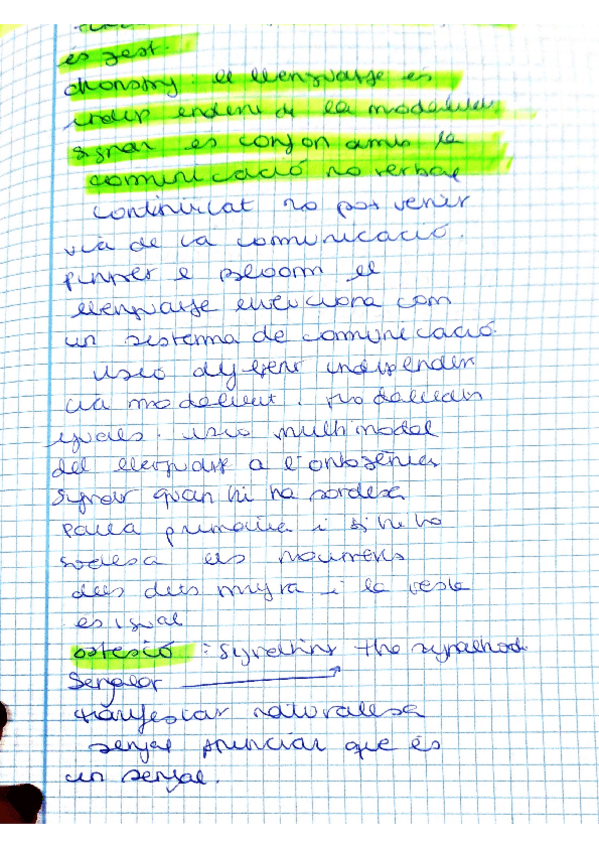 és gest.
chomsky: el llenguatge és
independent de la modalitat.
signar es confon amb la
comunicació no verbal
continuitat no pot venir
via de la comunicació.
pinker e Bloom el
llenguatge evoluciona com
un sistema de comunicació.
visió
modalitat.
iguals. visió multimodal
del llenguatge a l'ontogènia
signar quan hi ha sordesa
parla primaria i si no hi ha
sordesa els moviments
dels dits i la resta
és igual
ostesió: signaling the signalhood
Senyalar
manifestar naturalesa
senyal anunciar que és
un senyal.